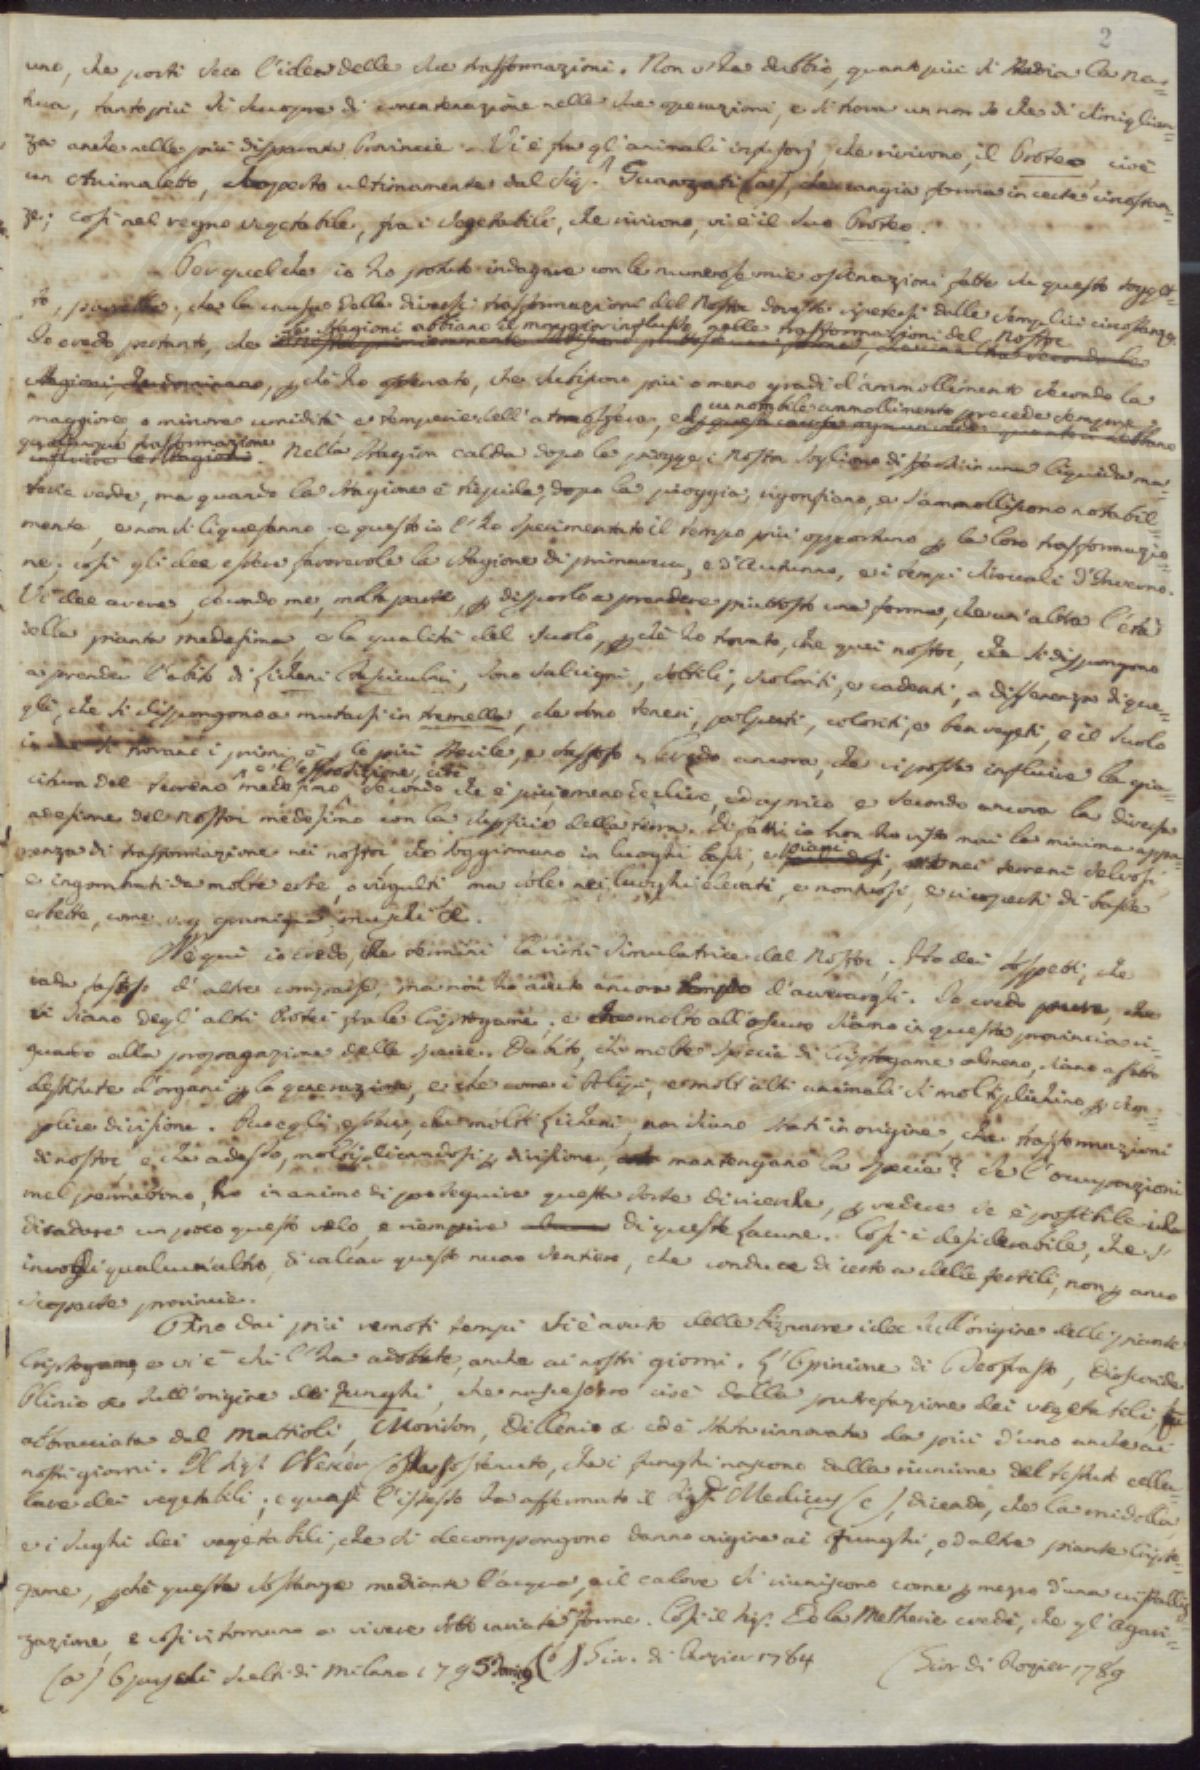 2
uno, che porti seco l'idea delle sue trasformazioni. Non v'ha dubbio, quanto più si studia la na=
tura, tanto più si scuopre di concatenazione nelle sue operazioni, e si trova un non so che di somiglian=
za anche nelle più disparate Provincie. Vi è fra gl'animali infusorj, che rivivono, il Proteo, cioè
un Animaletto, scoperto ultimamente dal Sig.r Guanzati (a), che cangia forma in certe circostan=
ze; così nel regno vegetabile, fra i vegetabili, che rivivono, vi è il suo Proteo.
Per quel che io ho potuto indagare con le numerose mie osservazioni fatte su questo sogget=
to, parrebbe, che la causa delle diverse trasformazioni del Nostoc dovesse ripetersi dalle semplici circostanze.
Io credo pertanto, che le Stagioni abbiano il maggior influsso nelle trasformazioni del Nostoc
Stagioni, che dominano, perchè ho osservato, che subiscono più o meno gradi d'ammollimento secondo la
maggiore, o minore umidità e temperie dell'atmosfera, e un notabile ammollimento precede sempre
qualunque trasformazione. Nella Stagion calda dopo le piogge i Nostoc sogliono disfarsi in una liquida ma=
teria verde, ma quando la Stagione è tiepida, dopo la pioggia, rigonfiano, e s'ammolliscono notabil=
mente, e non si liquefanno, e questo io l'ho sperimentato il tempo più opportuno per la loro trasformazio=
ne; così gli dee esser favorevole la Stagione di primavera, e d'Autunno, e i tempi sciroccali d'Inverno.
Vi dee avere, secondo me, molta parte, per disporlo a prendere piuttosto una forma, che un'altra l'età
della pianta medesima, e la qualità del suolo, perchè ho trovato, che quei nostoc, che si dispongono
a prender l'abito di Licheni fascicolari, sono salcigni, sottili, scoloriti, e cadenti, a differenza di que=
gli, che si dispongono a mutarsi in tremella, che sono teneri, polputi, coloriti, e ben vegeti, e il suolo
in cui si trovano i primi, è per lo più sterile, e sassoso. Credo ancora, che vi possa influire la gia=
citura del terreno medesimo, e l'esposizione, cioè secondo che è più, o meno declive, ed aprico e secondo ancora la diversa
adesione del Nostoc medesimo con la superficie della terra. Di fatti io non ho visto mai la minima appa=
renza di trasformazione nei nostoc che soggiornano in luoghi bassi, e piani, nei terreni selvosi,
e ingombrati da molte erbe, o virgulti ma solo nei luoghi elevati, e montuosi, e ricoperti di basse
erbette, come v.g. muschi &c.
Nè qui io credo, che termini la virtù simulatrice del Nostoc. Ho dei sospetti, che
vada soggetto d'altre comparse, ma non ho avuto ancora tempo d'avverargli. Io credo pure, che
vi siano degl'altri Protei fra le Criptogame, e che molto all'oscuro siamo in questa provincia ri=
guardo alla propagazione delle specie. Dubito, che molte specie di Criptogame almeno, siano affatto
destitute d'organi per la generazione, e che come i Polipi, e molt'altri animali si moltiplichino per sem=
plice divisione. Può egli essere, che molti Licheni, non siano stati in origine, che trasformazioni
di nostoc, e che adesso, moltiplicandosi per divisione, mantengano la specie? Se l'occupazioni
mel permettono, ho in animo di proseguire questa sorte di ricerche, per vedere se è possibile
diradare un poco questo velo, e riempire di queste lacune. Così è desiderabile, che s'
invogli qualcun'altro, di calcar questo nuovo sentiero, che conduce di certo a delle fertili, non per anco
scoperte provincie.
Fino dai più remoti tempi si è avuto delle bizzarre idee sull'origine delle piante
Criptogame, e vi è chi l'ha adottate, anche ai nostri giorni. L'Opinione di Teofrasto, Dioscoride
Plinio &c sull'origine dei funghi, che nascessero cioè dalla putrefazione dei vegetabili, fu
abbracciata dal Mattioli, Morison, Dillenio &c ed è stata rinnovata da più d'uno anche ai
nostri giorni. Il Sig.r Necker (b) ha sostenuto, che i funghi nascono dalla riunione del tessuto cellu=
lare dei vegetabili; e quasi l'istesso ha affermato il Sig.r Medicus (c), dicendo, che la midolla,
e i sughi dei vegetabili, che si decompongono danno origine ai Funghi, od altre piante Cripto=
game, perchè queste sostanze mediante l'acqua, e il calore si riuniscono come per mezzo d'una cristalliz=
zazione, e così ritornano a vivere sotto variate forme. Così il Sig.r De la Metherie crede, che gl'Agari=
(a) Opuscoli scelti di Milano 1795 (b) Gior. di Rozier 1784 (Gior di Rozier 1789